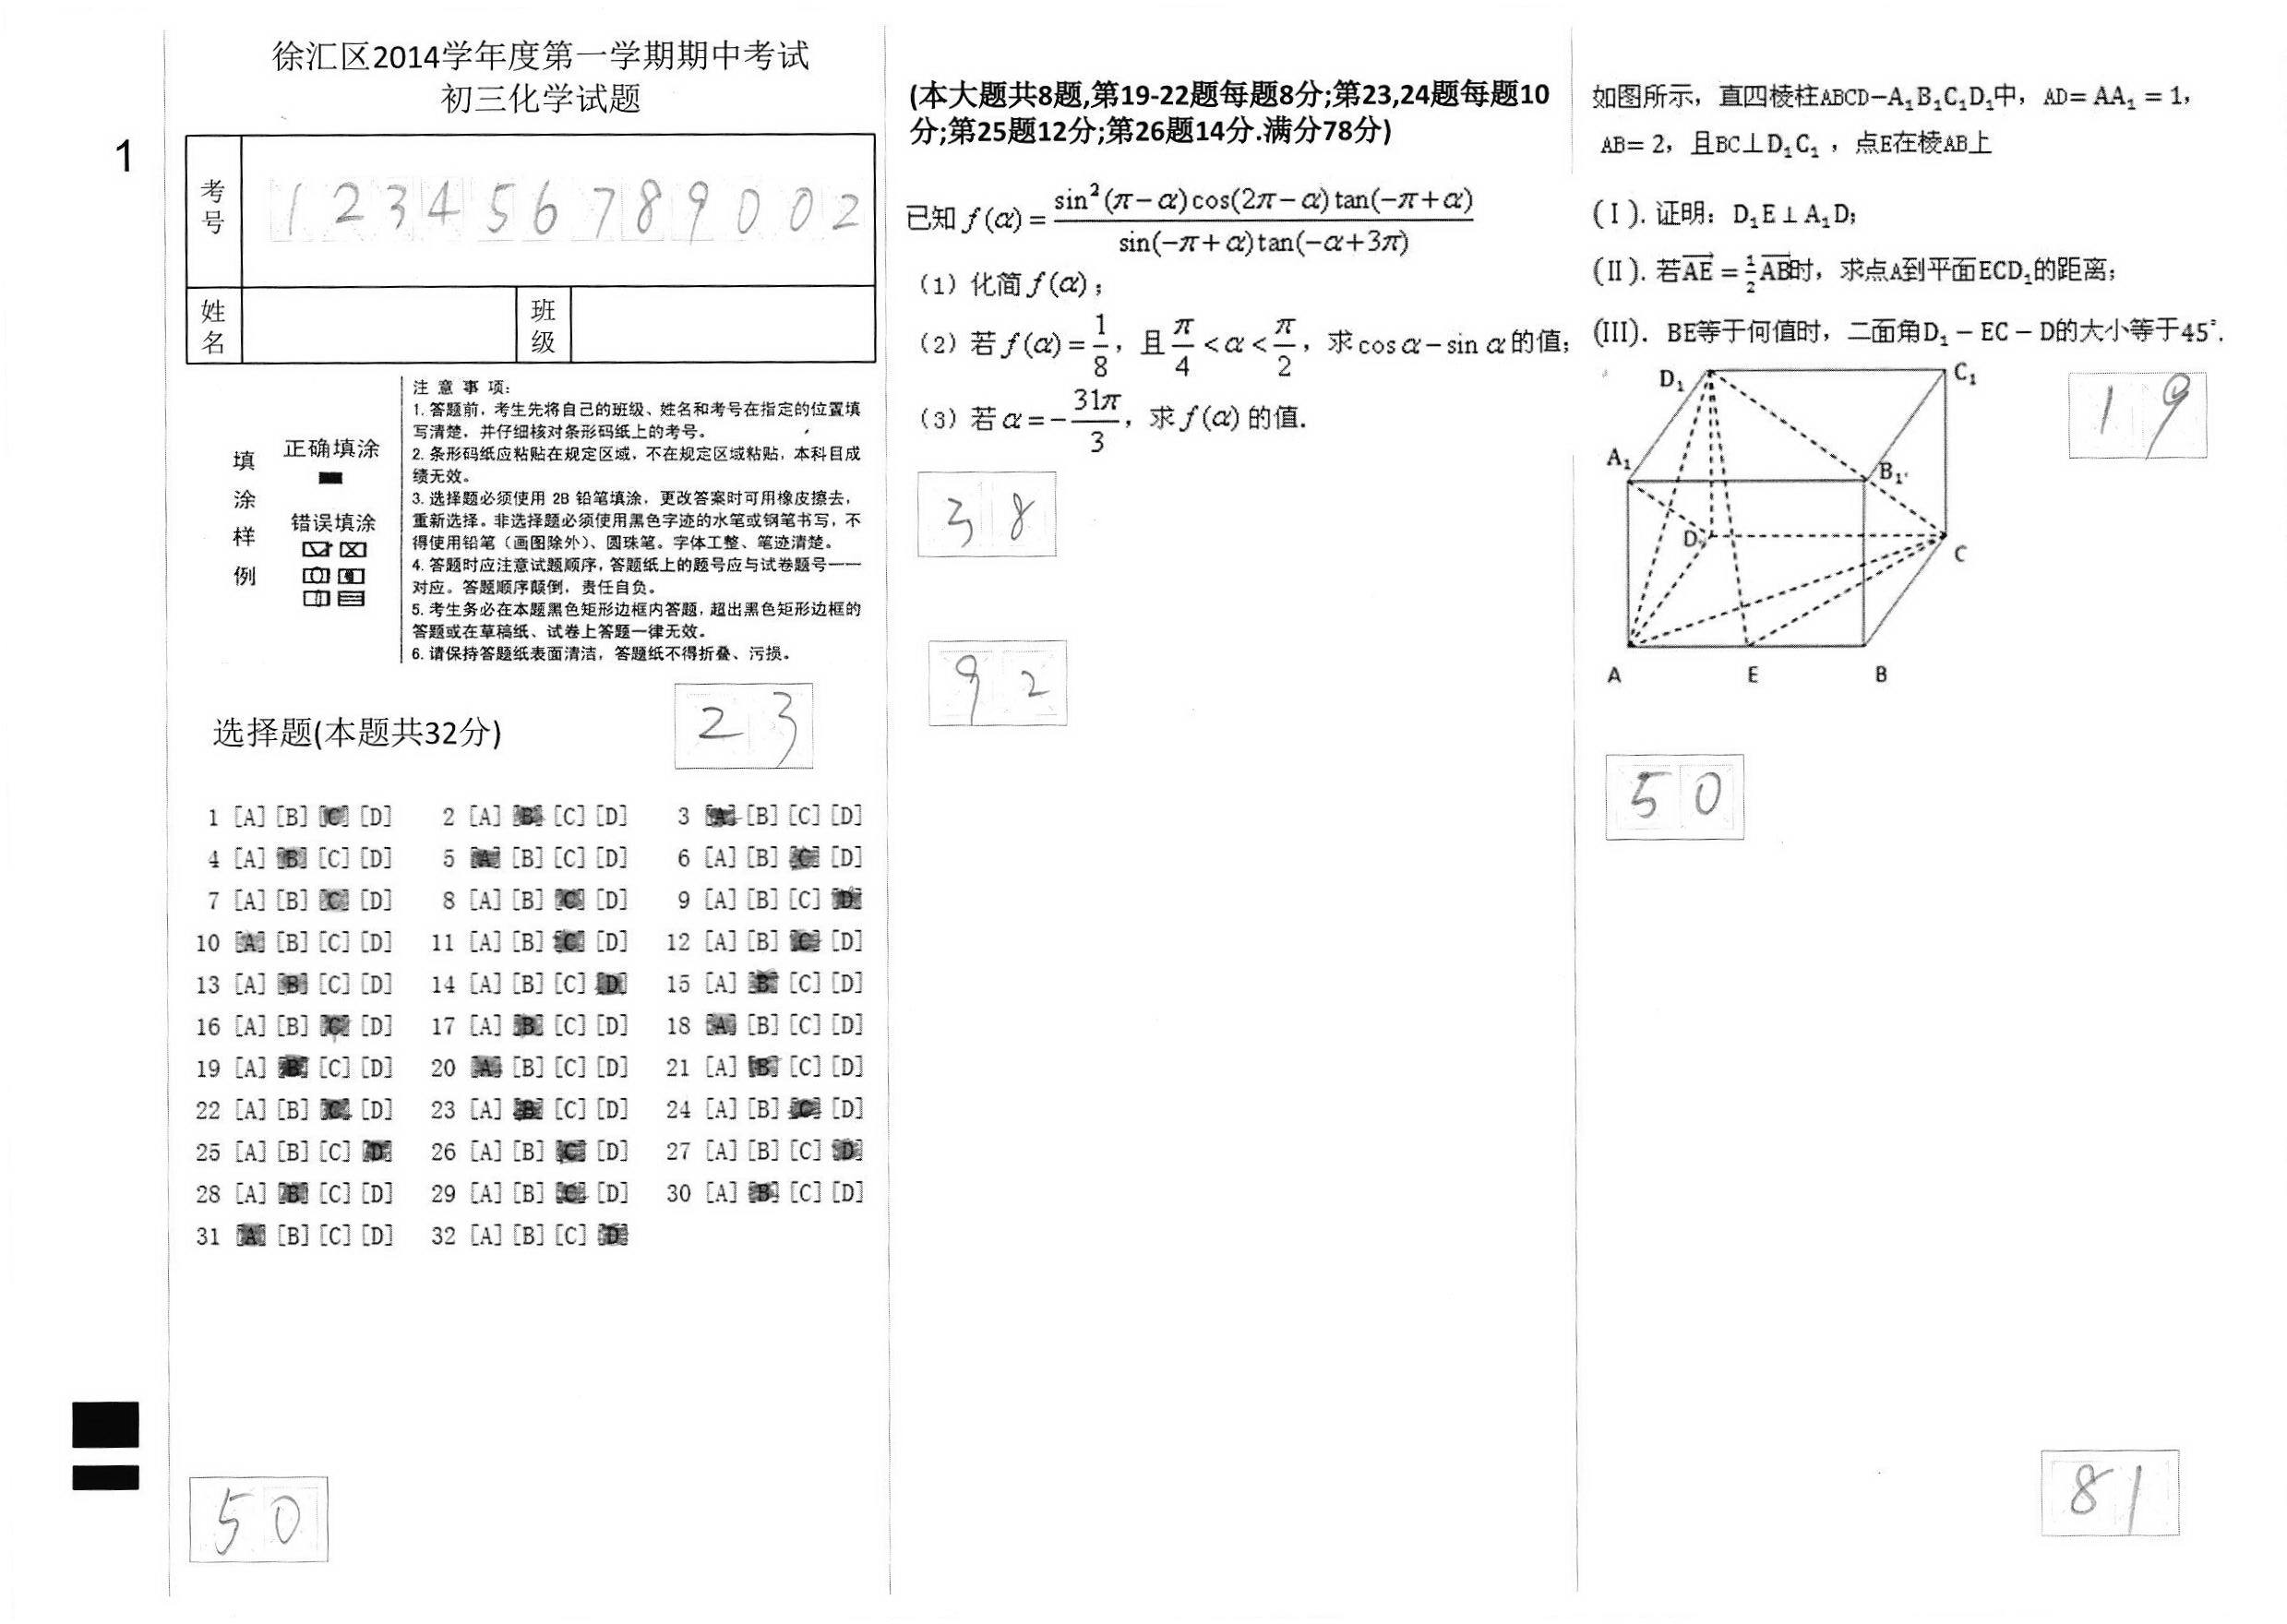 徐汇区2014学年度第一学期期中考试
初三化学试题
1
考号 1 2 3 4 5 6 7 8 9 0 0 2
姓名 班级
填涂样例
正确填涂
错误填涂
注 意 事 项:
1. 答题前,考生先将自己的班级、姓名和考号在指定的位置填
写清楚,并仔细核对条形码纸上的考号。
2. 条形码纸应粘贴在规定区域,不在规定区域粘贴,本科目成
绩无效。
3. 选择题必须使用 2B 铅笔填涂,更改答案时可用橡皮擦去,
重新选择。非选择题必须使用黑色字迹的水笔或钢笔书写,不
得使用铅笔(画图除外)、圆珠笔。字体工整、笔迹清楚。
4. 答题时应注意试题顺序,答题纸上的题号应与试卷题号一一
对应。答题顺序颠倒,责任自负。
5. 考生务必在本题黑色矩形边框内答题,超出黑色矩形边框的
答题或在草稿纸、试卷上答题一律无效。
6. 请保持答题纸表面清洁,答题纸不得折叠、污损。
选择题(本题共32分)
2 3
1 [A] [B] [C] [D] 2 [A] [B] [C] [D] 3 [A] [B] [C] [D]
4 [A] [B] [C] [D] 5 [A] [B] [C] [D] 6 [A] [B] [C] [D]
7 [A] [B] [C] [D] 8 [A] [B] [C] [D] 9 [A] [B] [C] [D]
10 [A] [B] [C] [D] 11 [A] [B] [C] [D] 12 [A] [B] [C] [D]
13 [A] [B] [C] [D] 14 [A] [B] [C] [D] 15 [A] [B] [C] [D]
16 [A] [B] [C] [D] 17 [A] [B] [C] [D] 18 [A] [B] [C] [D]
19 [A] [B] [C] [D] 20 [A] [B] [C] [D] 21 [A] [B] [C] [D]
22 [A] [B] [C] [D] 23 [A] [B] [C] [D] 24 [A] [B] [C] [D]
25 [A] [B] [C] [D] 26 [A] [B] [C] [D] 27 [A] [B] [C] [D]
28 [A] [B] [C] [D] 29 [A] [B] [C] [D] 30 [A] [B] [C] [D]
31 [A] [B] [C] [D] 32 [A] [B] [C] [D]
5 0
(本大题共8题,第19-22题每题8分;第23,24题每题10
分;第25题12分;第26题14分.满分78分)
已知 f(α) = sin²(π−α)cos(2π−α)tan(−π+α) / sin(−π+α)tan(−α+3π)
(1) 化简 f(α);
(2) 若 f(α) = 1/8, 且 π/4 < α < π/2, 求 cos α − sin α 的值;
(3) 若 α = −31π/3, 求 f(α) 的值.
3 8
9 2
如图所示, 直四棱柱ABCD−A₁B₁C₁D₁中, AD= AA₁ = 1,
AB= 2, 且BC⊥D₁C₁ , 点E在棱AB上
(Ⅰ). 证明: D₁E⊥A₁D;
(Ⅱ). 若AE→ = 1/2 AB→时, 求点A到平面ECD₁的距离;
(III). BE等于何值时, 二面角D₁ − EC − D的大小等于45°.
1 9
D₁ C₁
A₁ B₁
D C
A E B
5 0
8 1